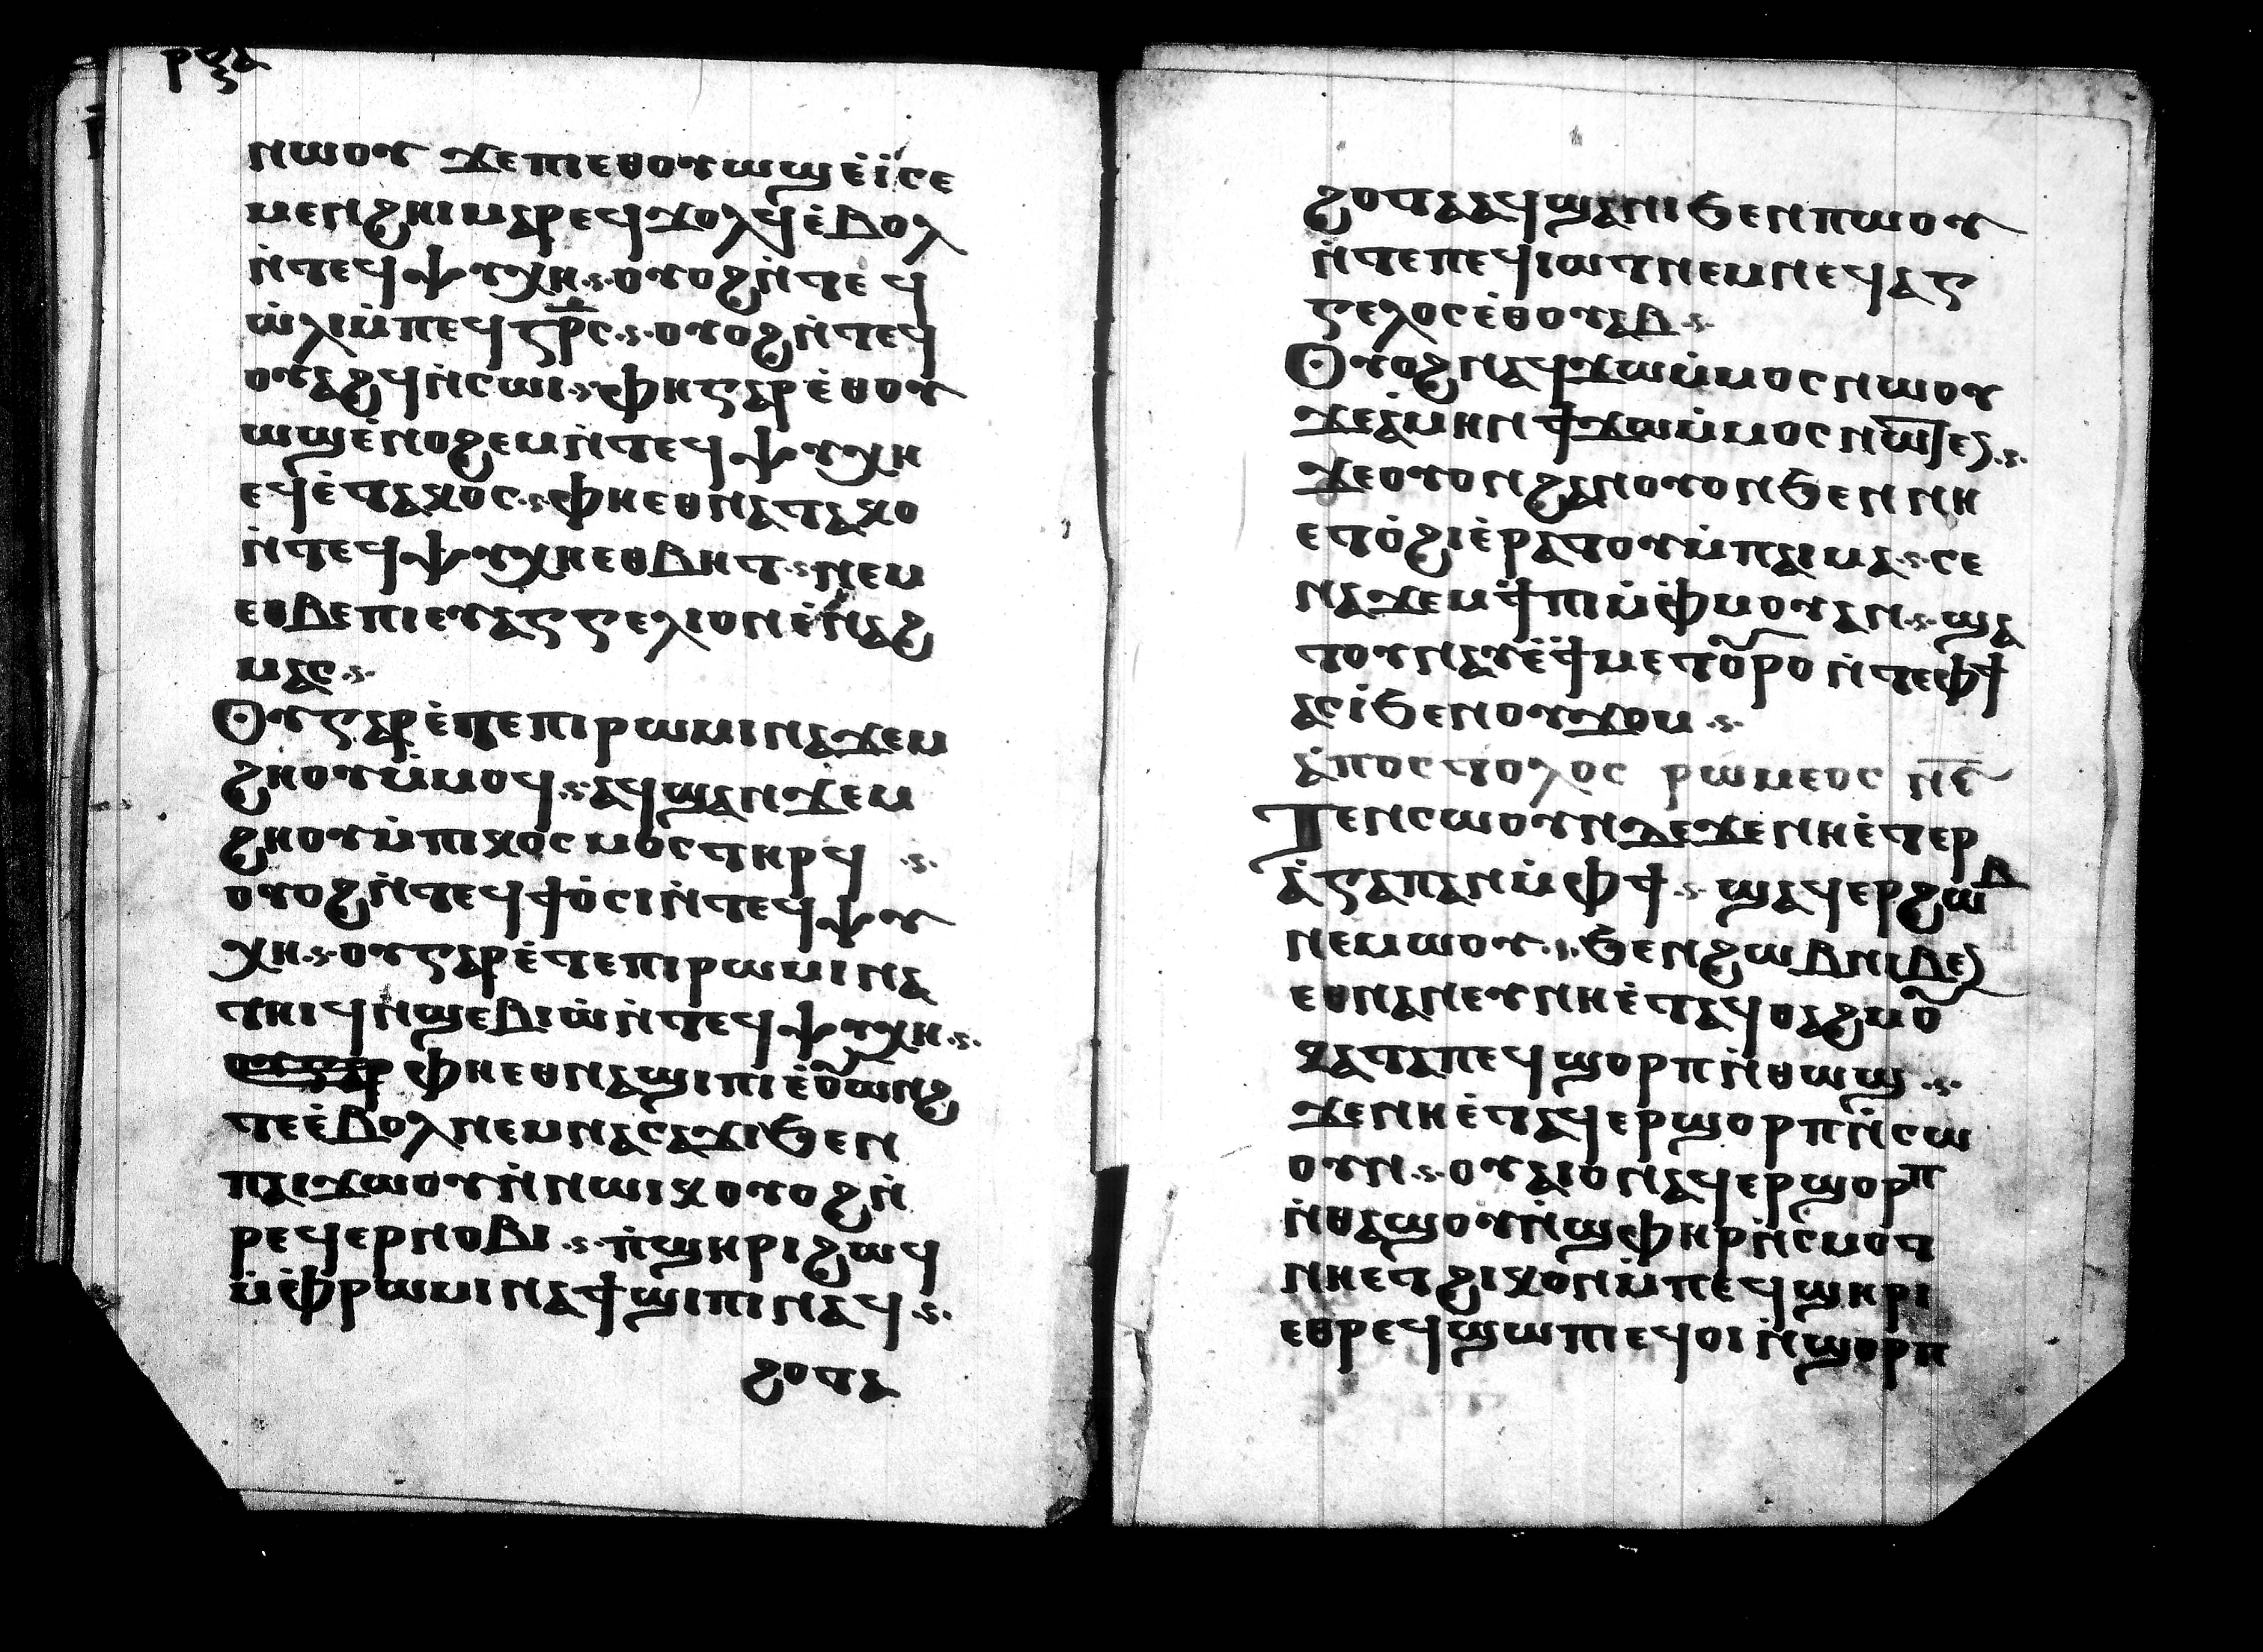 ⲣⲝⲇ
ⲛⲱⲟⲩ ϫⲉⲡⲓⲉⲑⲟⲩⲱϣⲉ̀ⲓ̀ⲥⲉ
ⲙⲉⲛϩⲏⲓⲙⲁⲣⲉϥϫⲟⲗϥⲉ̀ⲃⲟⲗ
ⲛ̀ⲧⲉϥⲯⲩⲭⲏ·ⲟⲩⲟϩⲛ̀ⲧⲉϥ
ⲱ̀ⲗⲓⲙ̀ⲡⲉϥⲥ̅ⲣ̅ⲥ·ⲟⲩⲟϩⲛ̀ⲧⲉϥ
ⲟⲩⲁϩϥⲛ̀ⲥⲱⲓ·ⲫⲏⲅⲁⲣⲉ̀ⲑⲟⲩ
ⲱϣⲉ̀ⲛⲟϩⲉⲙⲛ̀ⲧⲉϥⲯⲩⲭⲏ
ⲉϥⲉ̀ⲧⲁⲕⲟⲥ·ⲫⲏⲉⲑⲛⲁⲧⲁⲕⲟ
ⲛ̀ⲧⲉϥⲯⲩⲭⲏⲉⲑⲃⲏⲧ·ⲛⲉⲙ
ⲉⲑⲃⲉⲡⲓⲉⲩⲁⲅⲅⲉⲗⲓⲟⲛⲉ̀ⲛⲁϩ
ⲙⲁⲥ·
Ⲟⲩⲅⲁⲣⲉ̀ⲧⲉⲡⲓⲣⲱⲙⲓⲛⲁϫⲉⲙ
ϩⲏⲟⲩⲙ̀ⲙⲟϥ·ⲁϥϣⲁⲛϫⲉⲙ
ϩⲏⲟⲩⲙ̀ⲡⲓⲕⲟⲥⲙⲟⲥⲧⲏⲣϥ ·
ⲟⲩⲟϩⲛ̀ⲧⲉϥϯⲟ̀ⲥⲓⲛ̀ⲧⲉϥⲯⲩ
ⲭⲏ·ⲟⲩⲅⲁⲣⲉ̀ⲧⲉⲡⲓⲣⲱⲙⲓⲛⲁ
ⲧⲏⲓϥⲛ̀ϣⲉⲃⲓⲱ̀ⲛ̀ⲧⲉϥⲯⲩⲭⲏ·
ⲫⲏⲉⲑⲛⲁϣⲓⲡⲓⲉ̀ⲟⲩⲱⲛϩ
ⲧⲉⲉ̀ⲃⲟⲗⲛⲉⲙⲛⲁⲥⲁϫⲓϧⲉⲛ
ⲡⲁⲓϫⲱⲟⲩⲛ̀ⲛⲱⲓⲕⲟⲩⲟϩⲛ̀
ⲣⲉϥⲉⲣⲛⲟⲃⲓ·ⲡ̀ϣⲏⲣⲓϩⲱϥ
ⲙ̀ⲫ̀ⲣⲱⲙⲓⲛⲁϯϣⲓⲡⲓⲛⲁϥ·
ϩⲟⲧⲁ
ϩⲟⲧⲁⲁϥϣⲁⲛⲓϧⲉⲛⲡⲱⲟⲩ
ⲛ̀ⲧⲉⲡⲉϥⲓⲱⲧⲛⲉⲙⲛⲉϥⲁⲅ
ⲅⲉⲗⲟⲥⲉ̀ⲑⲟⲩⲁⲃ·
Ⲟⲩⲟϩⲛⲁϥϫⲱⲙ̀ⲙⲟⲥⲛⲱⲟⲩ
ϫⲉⲁ̀ⲙⲏⲛϯϫⲱⲙ̀ⲙⲟⲥⲛⲱⲧⲉⲛ·
ϫⲉⲟⲩⲟⲛϩⲁⲛⲟⲩⲟⲛϧⲉⲛⲛⲏ
ⲉⲧⲟ̀ϩⲓⲉ̀ⲣⲁⲧⲟⲩⲙ̀ⲡⲁⲓⲙⲁ·ⲥⲉ
ⲛⲁϫⲉⲙϯⲡⲓⲙ̀ⲫ̀ⲙⲟⲩⲁⲛ·ϣⲁ
ⲧⲟⲩⲛⲁⲩⲉ̀ϯⲙⲉⲧⲟⲩⲣⲟⲛ̀ⲧⲉⲫϯ
ⲁⲥⲓ̀ϧⲉⲛⲟⲩϫⲟⲙ·
ⲁ̀ⲡⲟⲥⲧⲟⲗⲟⲥ ⲣⲱⲙⲉⲟⲥ ⲛ̅ⲉ̅
Ⲧⲉⲛⲥⲱⲟⲩⲛⲇⲉϫⲉⲛⲏⲉ̀ⲧⲉⲣ
ⲁ̀ⲅⲁⲡⲁⲛⲙ̀ⲫϯ·ϣⲁϥⲉⲣϩⲱⲃ
ⲛⲉⲙⲱⲟⲩ·ϧⲉⲛϩⲱⲃⲛⲓⲃⲉⲛ
ⲉⲑⲛⲁⲛⲉⲩⲛⲏⲉ̀ⲧⲁϥⲟⲁϩⲙⲟⲩ
ⲕⲁⲧⲁⲡⲉϥϣⲟⲣⲡⲛ̀ⲑⲱϣ·
ϫⲉⲛⲏⲉ̀ⲧⲁϥⲉⲣϣⲟⲣⲡⲛ̀ⲥⲱ
ⲟⲩⲛ·ⲟⲩⲁⲓⲟⲛⲁϥⲉⲣϣⲟⲣⲡ
ⲛ̀ⲑⲁϣⲟⲩⲛ̀ϣⲫⲏⲣⲛ̀ⲥⲙⲟⲧ
ⲛⲏⲉⲧϩⲓⲕⲟⲛⲙ̀ⲡⲉϥϣⲏⲣⲓ
ⲉⲑⲣⲉϥϣⲱⲡⲓⲉϥⲟⲓⲛ̀ϣⲟⲣⲡ